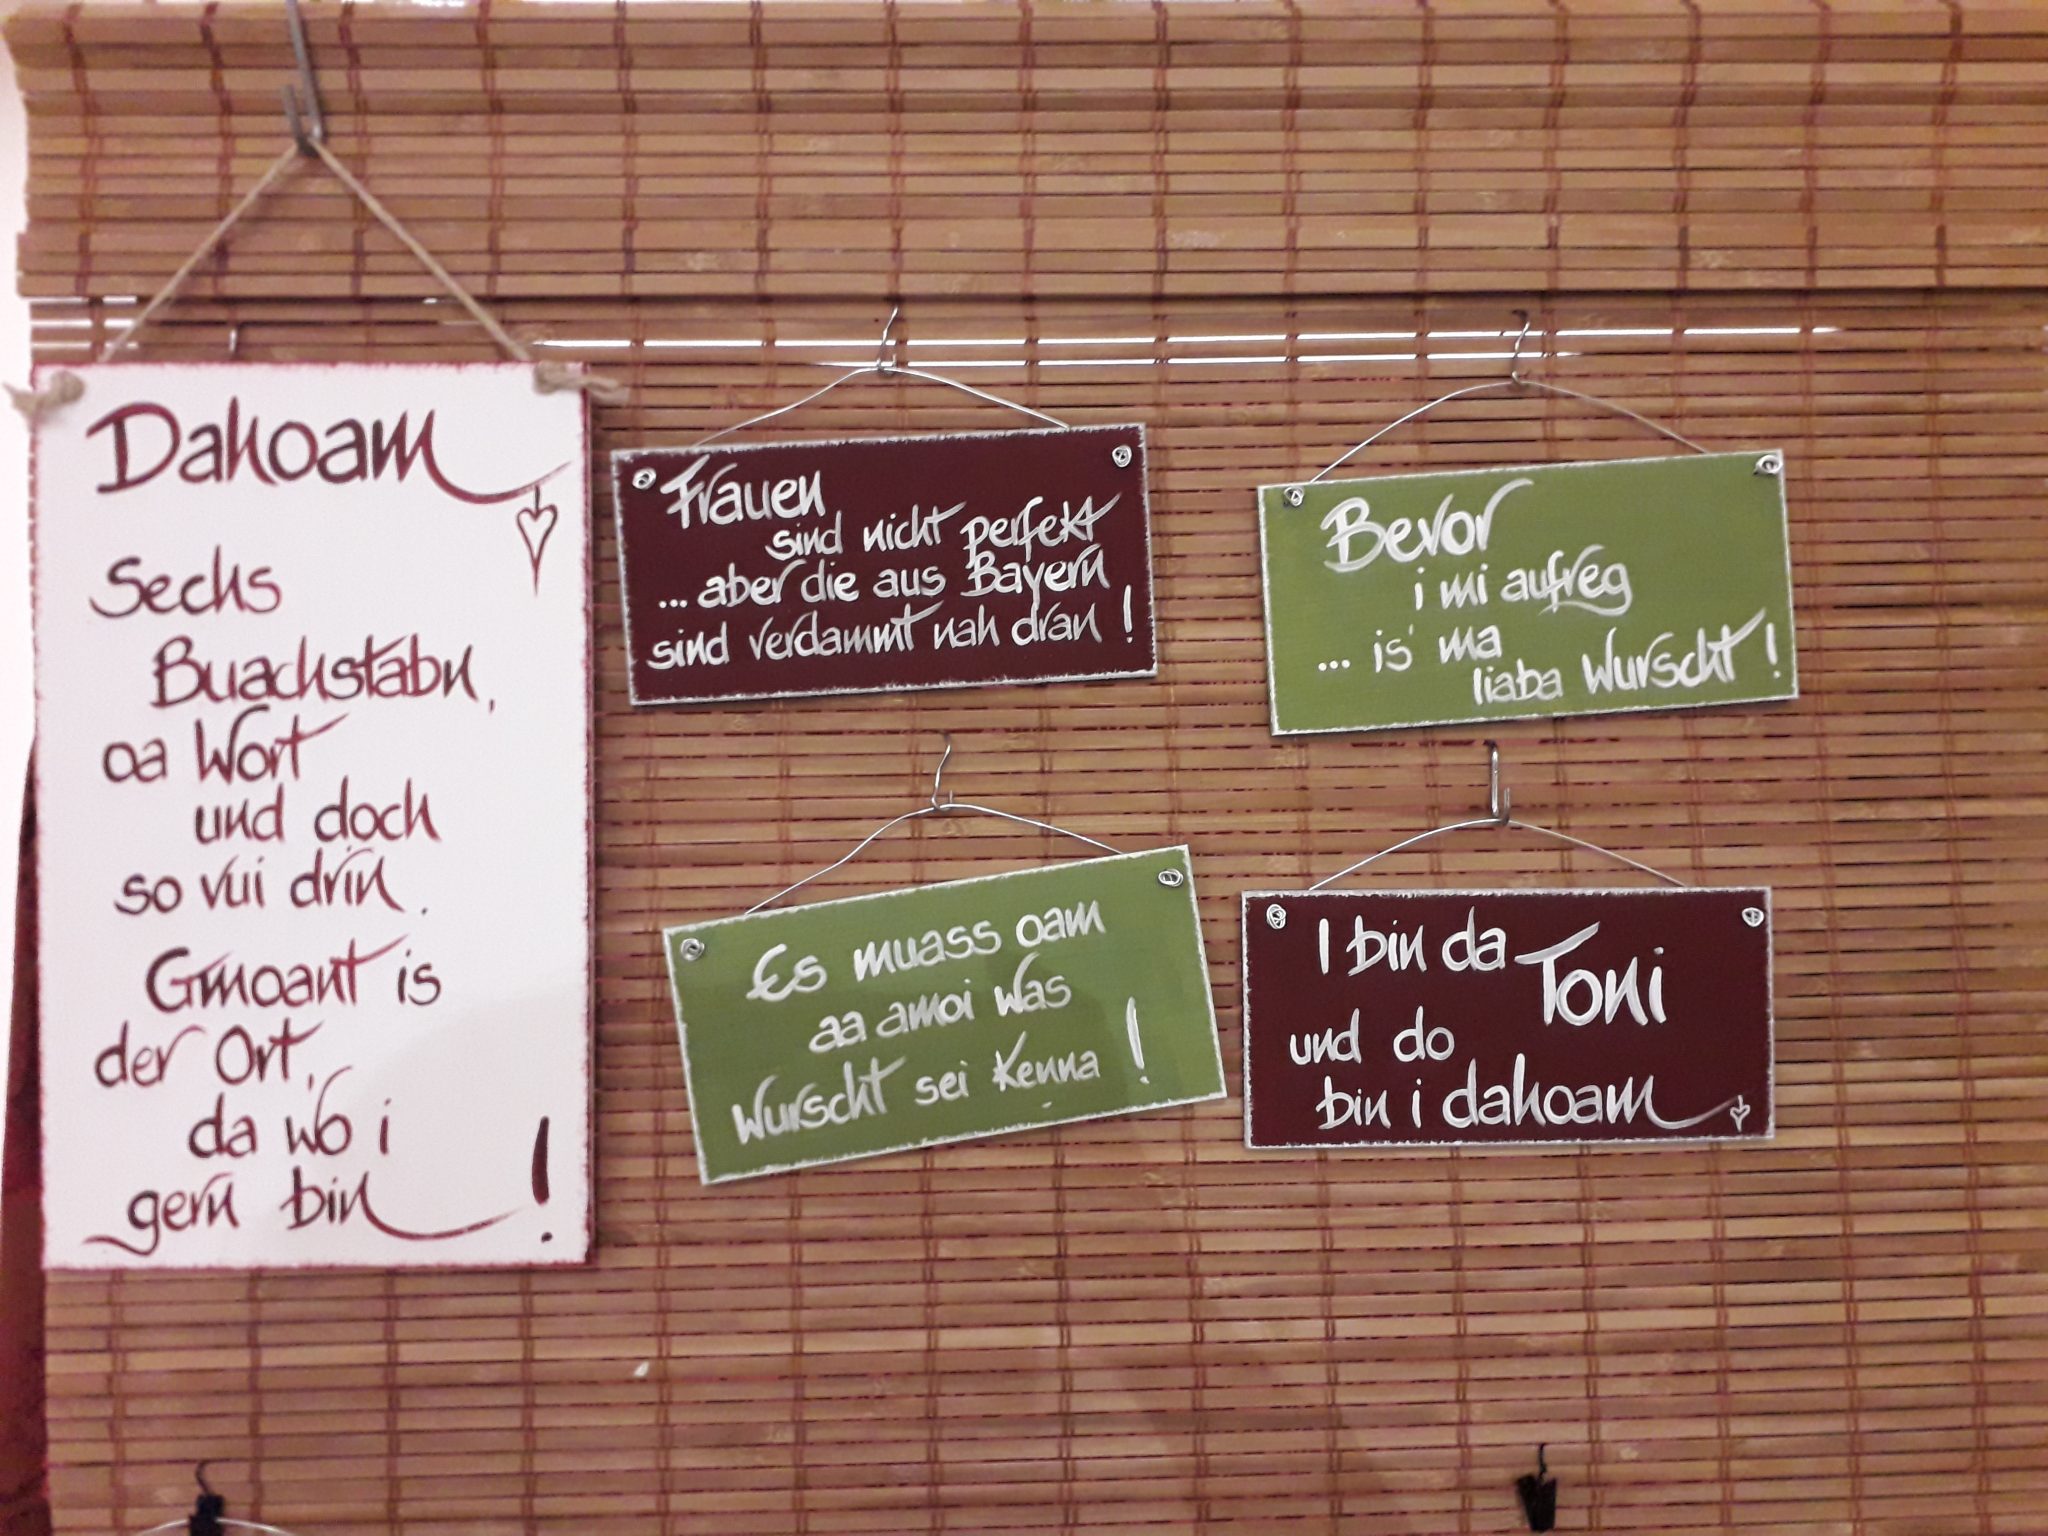 Dahoam
Sechs
Buachstabn,
oa Wort
und doch
so vui drin.
Gmoant is
der Ort,
da wo i
gern bin !
Frauen
sind nicht perfekt
... aber die aus Bayern
sind verdammt nah dran !
Bevor
i mi aufreg
... is' ma
liaba Wurscht !
Es muass oam
aa amoi was
Wurscht sei kenna !
I bin da Toni
und do
bin i dahoam